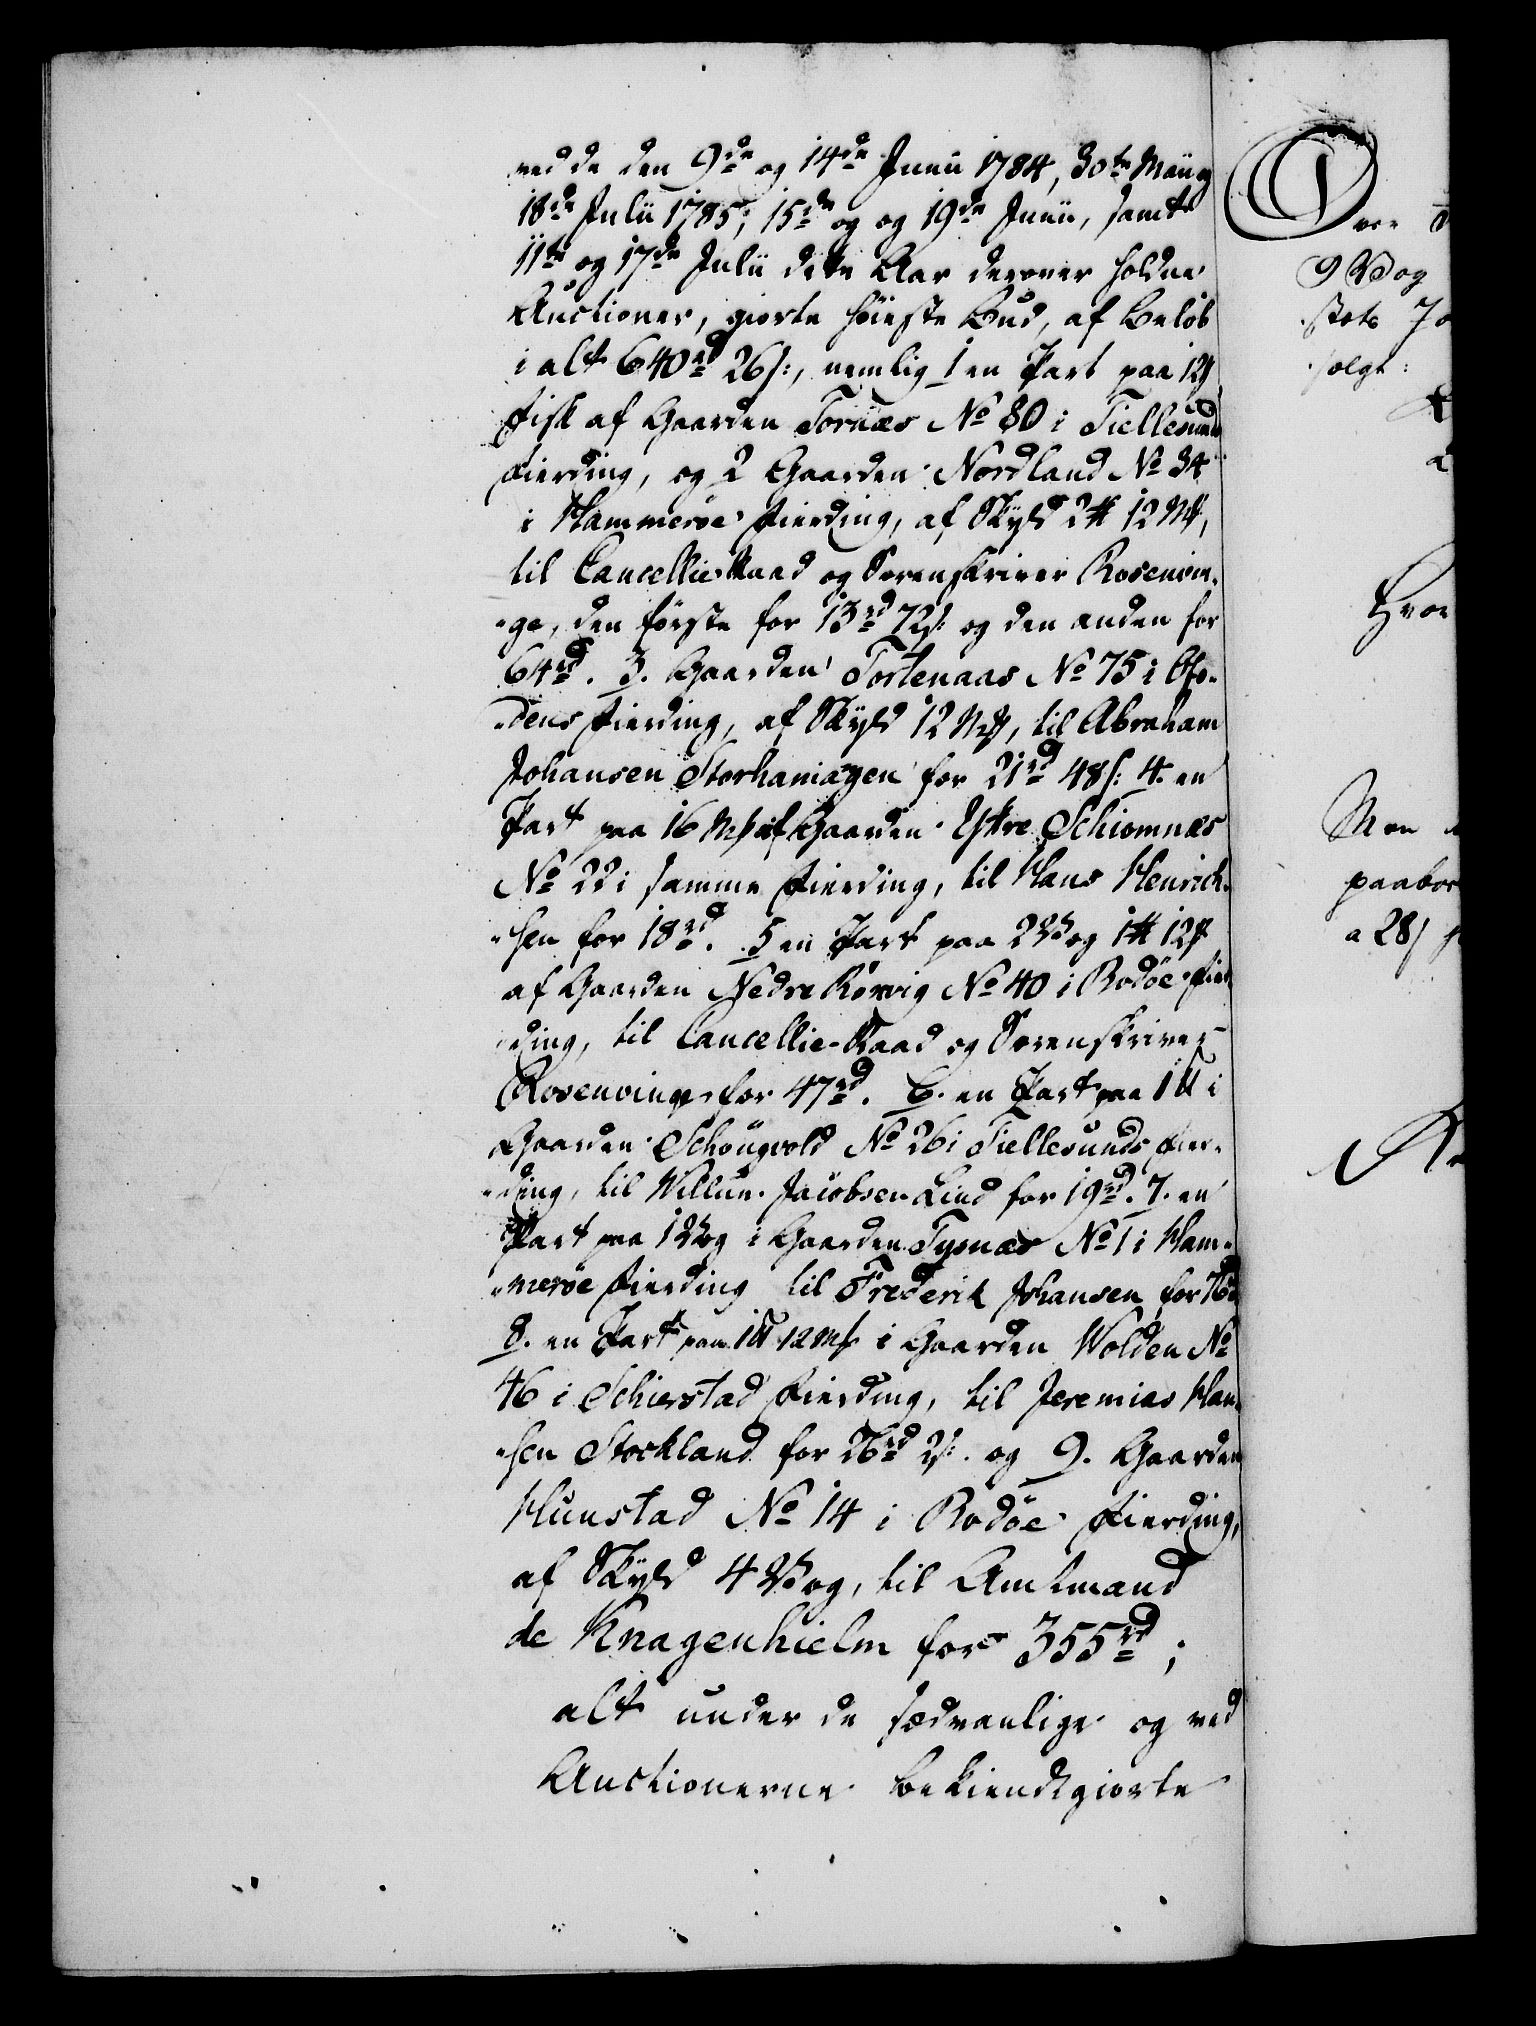 ved de den 9de og 14de Junii 1784, 30te Maii og
18de Julii 1785; 15de og og 19de Junii, samt
11te og 17de Julii dette Aar derover holdne
Auctioner, giorte høieste Bud, af Beløb
i alt 640rd 26s:, nemlig 1 en Part paa 12
Fisk af Gaarden Tornæs No 80 i Fiellesunds
Fierding, og 2 Gaarden Nordland No 34
i Hammerøe Fierding, af Skyld 2 12,
til Cancellie-Raad og Sorenskriver Rosenvin-
-ge, den første for 13rd 72s: og den anden for
64rd. 3. Gaarden Tortenaas No 75 i Ofo-
-dens Fierding, af Skyld 12, til Abraham
Johansen Storhaniagen for 21rd 48s: 4. en
Part paa 16 af Gaarden Ystre Schiomnæs
No 22 i samme Fierding, til Hans Henrich-
-sen for 18rd. 5 en Part paa 2 Vog 1 12
af Gaarden Nedre Rørvig No 40 i Bodøe Fier-
-ding, til Cancellie-Raad og Sorenskriver
Rosenvinge for 47rd. 6. en Part paa 1 i
Gaarden Schougvold No 26 i Fiellesunds Fier-
-ding, til Willun Jacobsen Lind for 19rd. 7. en
Part paa 1 Vog i Gaarden Tysnæs No 1 i Ham-
-merøe Fierding til Frederik Johansen for 76rd
8. en Part paa 1 12 i Gaarden Wolden No
46 i Schierstad Fierding, til Jeremias Han-
-sen Stockland for 26rd 2s: og 9. Gaarden
Hunstad No 14 i Bodøe Fierding,
af Skyld 4 Vog, til Amtmand
de Knagenhielm for 355rd;
alt under de sædvanlige og ved
Auctionerne bekiendtgiorte
Over
9 Vog
stets Jo
solgt:
Hvor
Men
paabor
a 28s